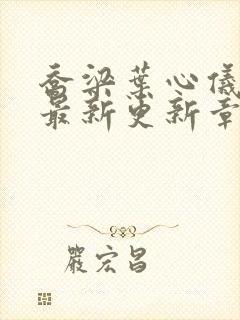 乔梁葉心儀
最新更新章
嚴宏昌